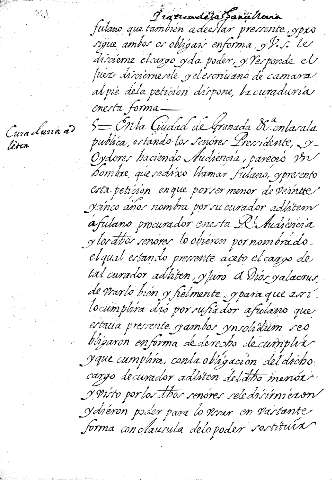 fulano que tambien a de estar presente, y pro
sigue ambos os obligais en forma, y V. S. le
discierne el cargo y da poder, y Responde el
Juez disciernesele y el escriuano de camara
al pie de la peticion dispone, la curaduria
en esta forma
Curaduria ad
litem
5 = En la Ciudad de Granada &a. en la sala
publica, estando los Senores Presidente, y
Oydores haciendo Audiencia, parecio Vn
hombre, que se dixo llamar fulano, y presento
esta peticion en que por ser menor de veinte
y cinco años nombra por su curador adlitem
a fulano procurador en esta Rl. Audiencia
y los dhos senores lo ovieron por nombrado
el qual estando presente aceto el cargo de
tal curador adliten, y juro a Dios y a la cruz
de vsarlo bien y fielmente, y para que asi
lo cumplira dio por su fiador a fulano que
estaua presente y ambos ynsolidum se o
bligaron en forma de derecho de cumplir
y que cumplira con la obligacion del dicho
cargo de curador adliten del dho menor
y visto por los dhos senores se le discirnieron
y dieron poder para lo vsar en vastante
forma con clausula de lo poder sostituir